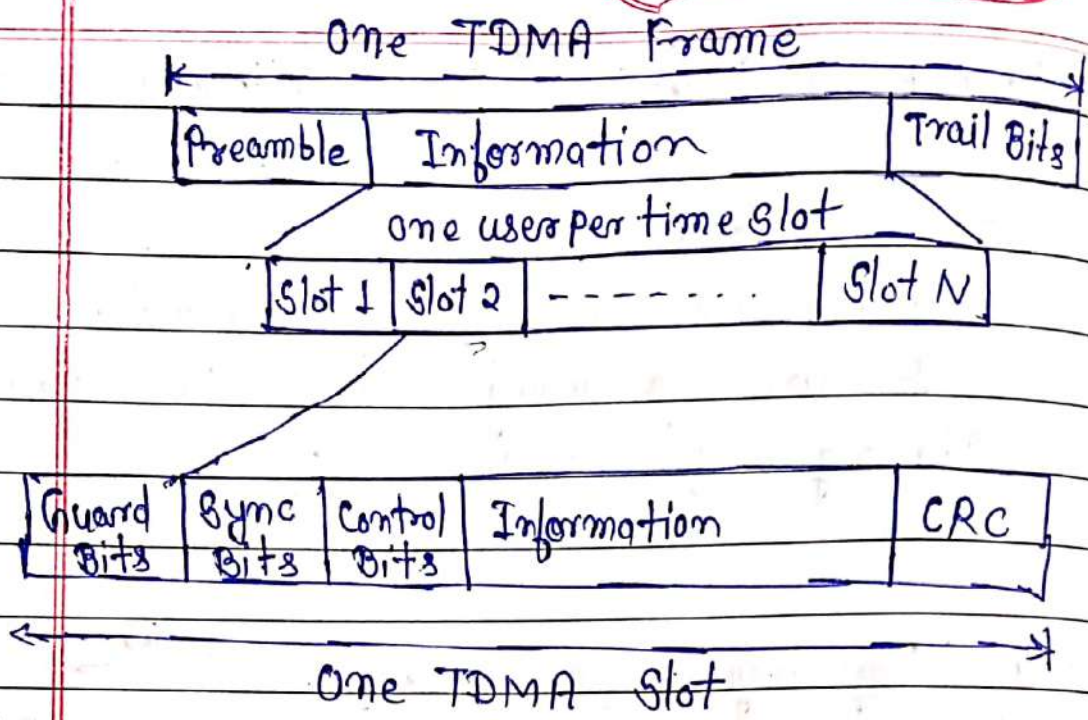 One TDMA Frame
Preamble Information Trail Bits
one user per time slot
Slot 1 Slot 2 ------- Slot N
Guard Bits Sync Bits Control Bits Information CRC
One TDMA Slot